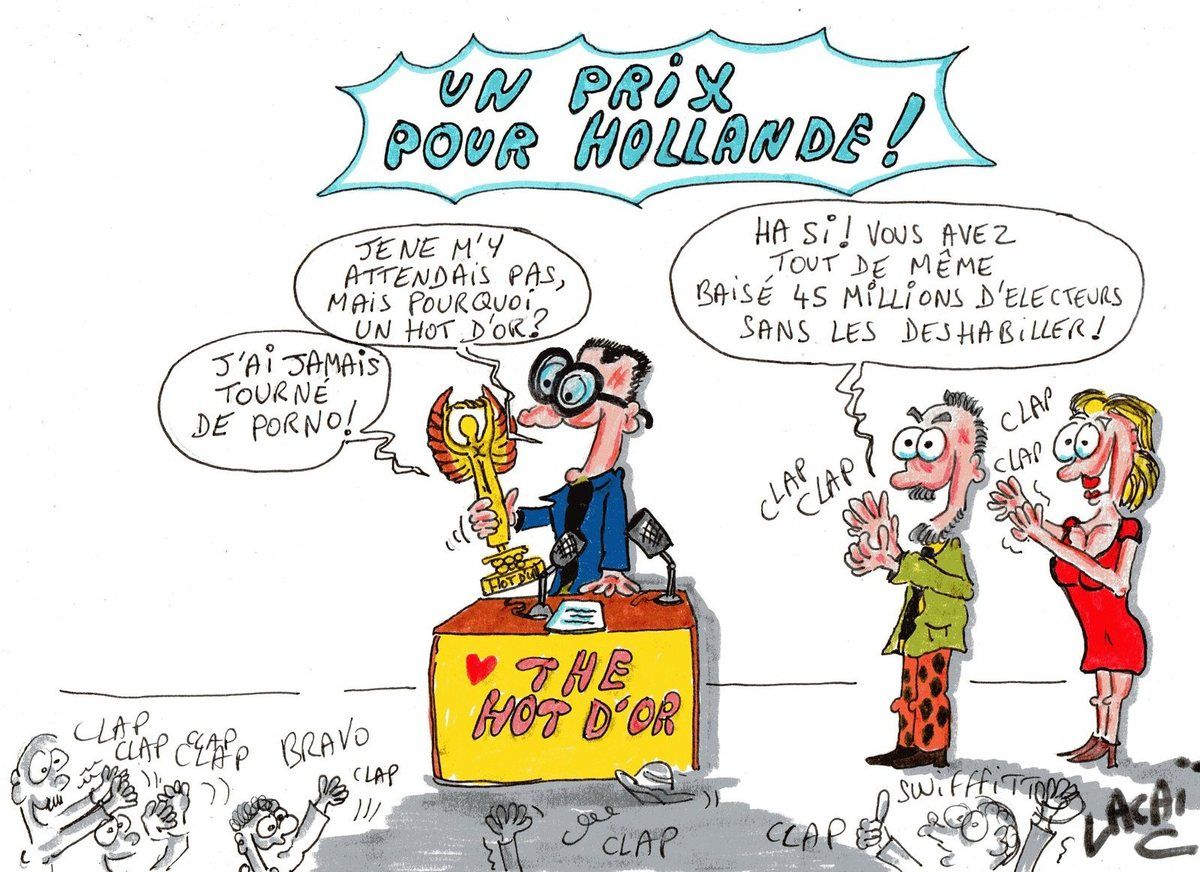 UN PRIX
POUR HOLLANDE!
JE NE M'Y
ATTENDAIS PAS,
MAIS POURQUOI
UN HOT D'OR?
J'AI JAMAIS
TOURNÉ
DE PORNO!
HA SI! VOUS AVEZ
TOUT DE MÊME
BAISÉ 45 MILLIONS D'ELECTEURS
SANS LES DESHABILLER!
CLAP
CLAP
CLAP
CLAP
HOT D'OR
THE
HOT D'OR
CLAP
CLAP
CLAP
CLAP
BRAVO
CLAP
CLAP
CLAP
SWIFFFITTT
LACAÏ